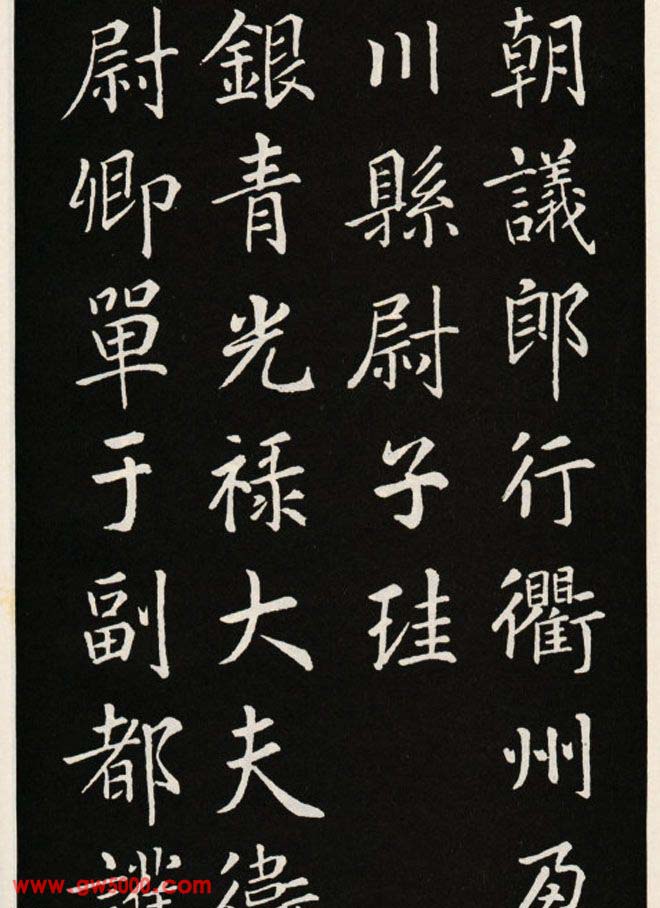 朝議郎行衢州盈
川縣尉子珪
銀青光禄大夫衛
尉卿單于副都護
www.gw5000.com